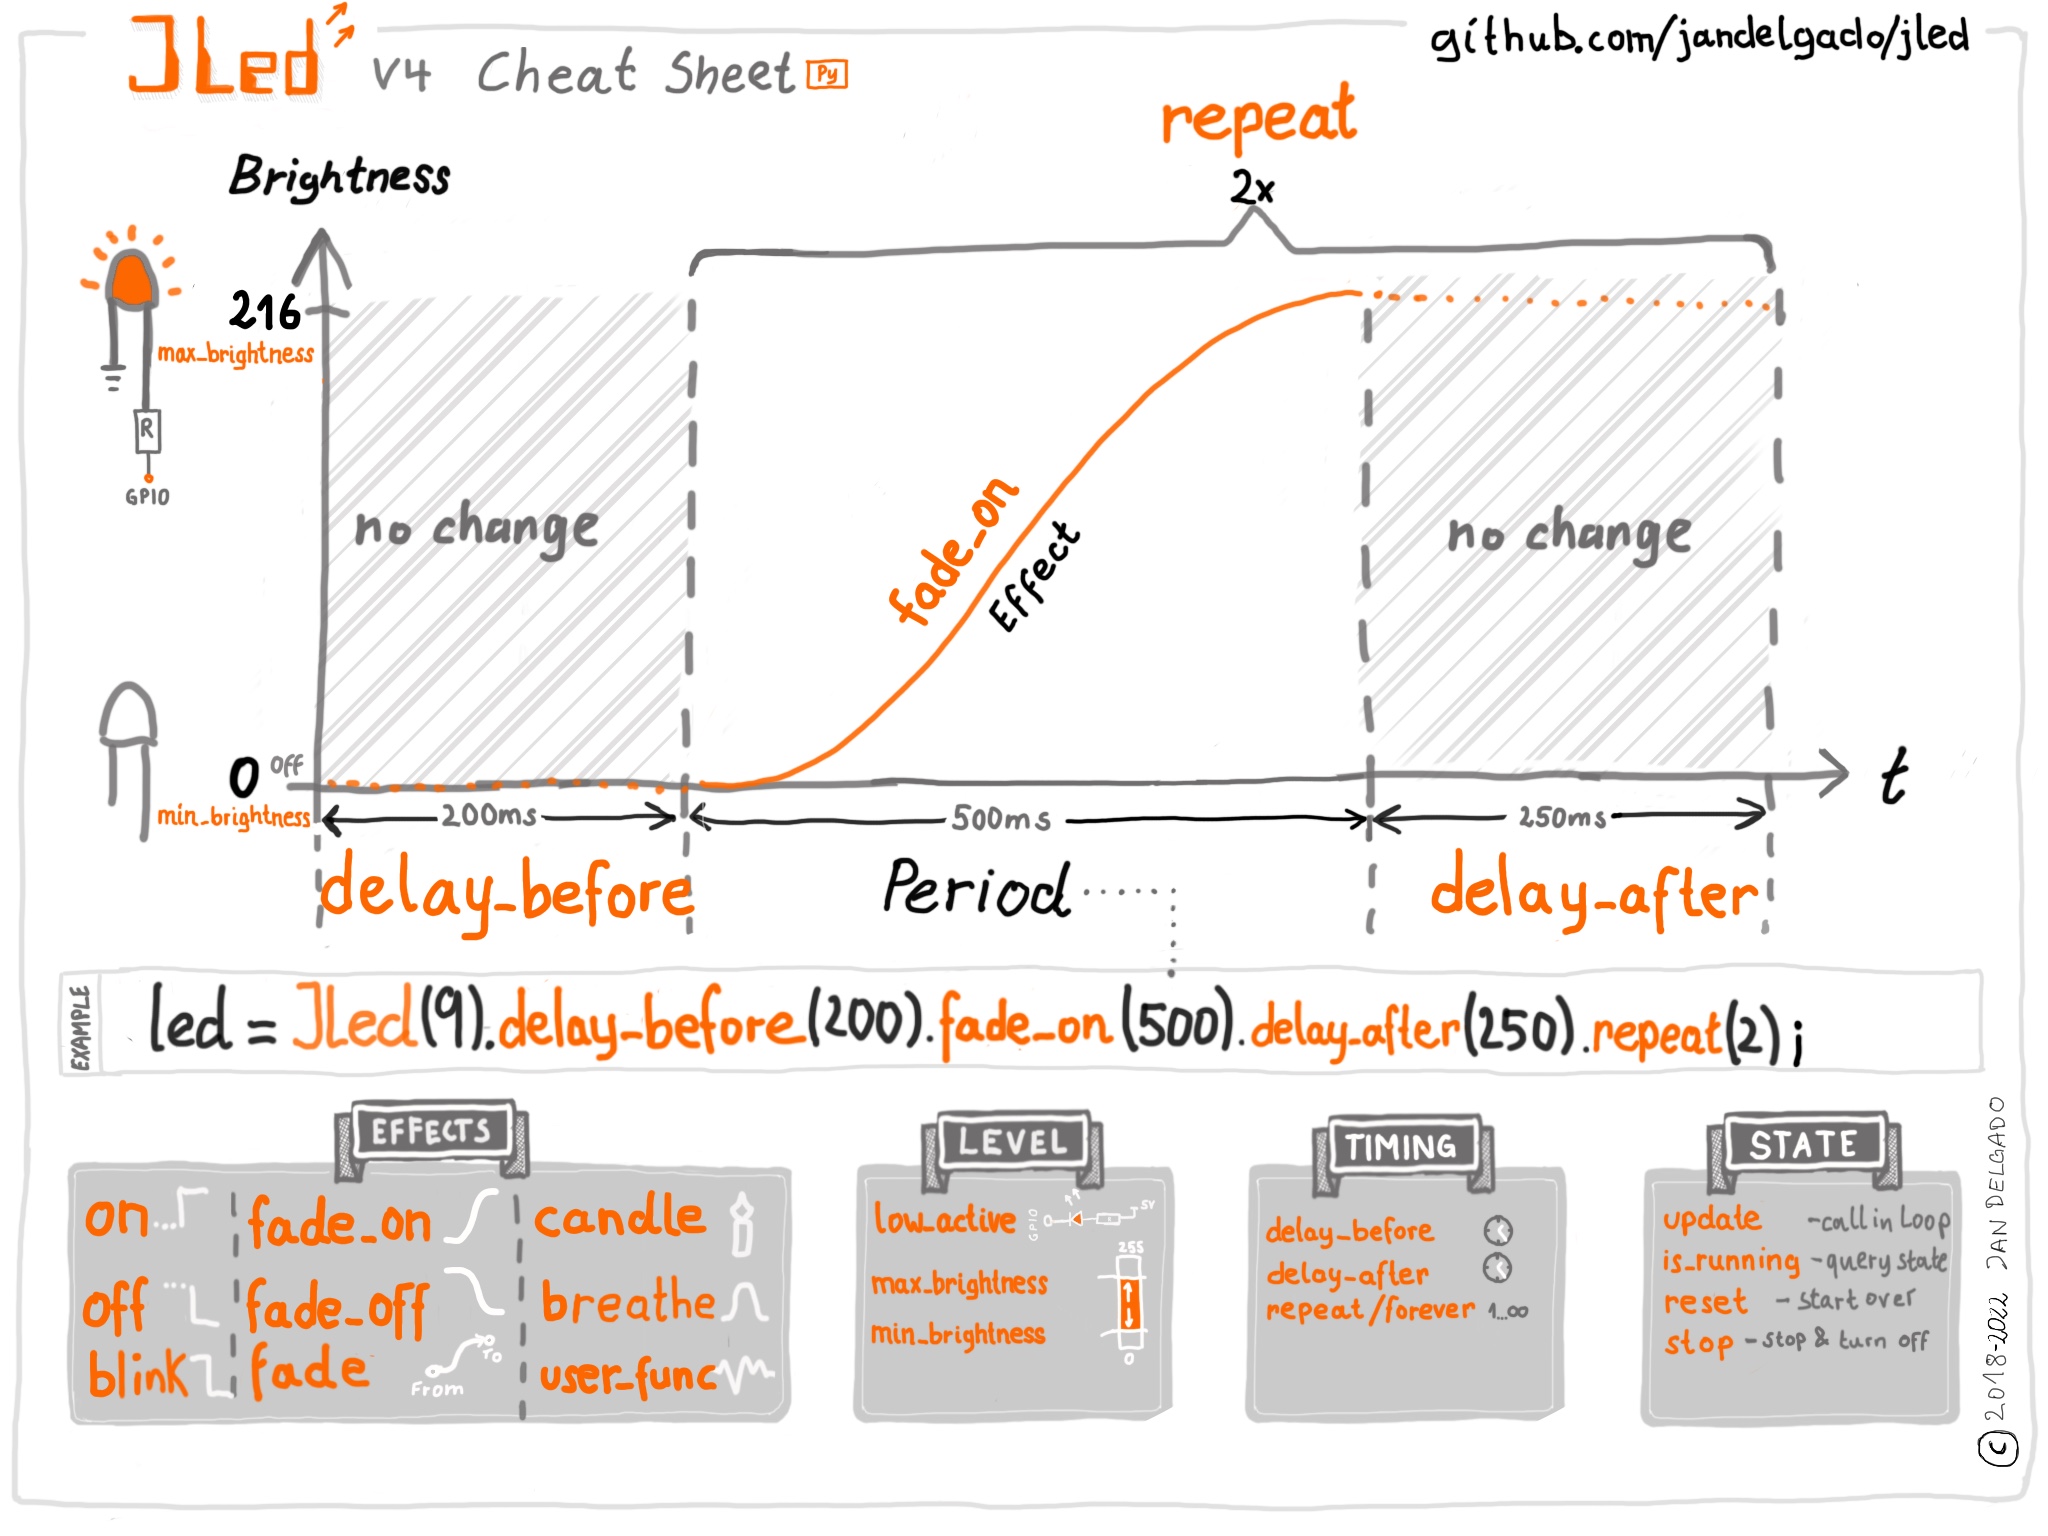 JLed V4 Cheat Sheet Py
github.com/jandelgado/jled
repeat
2x
Brightness
216
max_brightness
R
GPIO
no change
fade_on
Effect
no change
0 Off
min_brightness
t
200ms
500ms
250ms
delay_before
Period
delay_after
EXAMPLE
led = JLed(9).delay_before(200).fade_on(500).delay_after(250).repeat(2);
EFFECTS
on
fade_on
candle
off
fade_off
breathe
blink
fade
From
To
user_func
LEVEL
low_active
GPIO
5V
255
max_brightness
min_brightness
0
TIMING
delay_before
delay_after
repeat/forever 1...∞
STATE
update - call in Loop
is_running - query state
reset - start over
stop - stop & turn off
© 2018-2022 JAN DELGADO